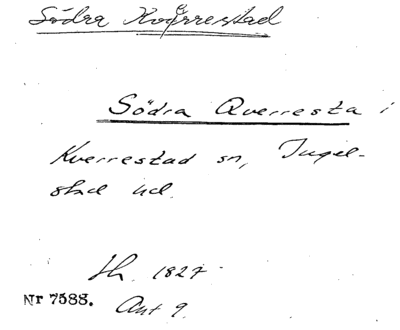 Södra Kvärrestad
Södra Qverresta i
Kverrestad sn, Ingel-
stad hd.
Jh. 1827
Nr 7588.
Ant 9.